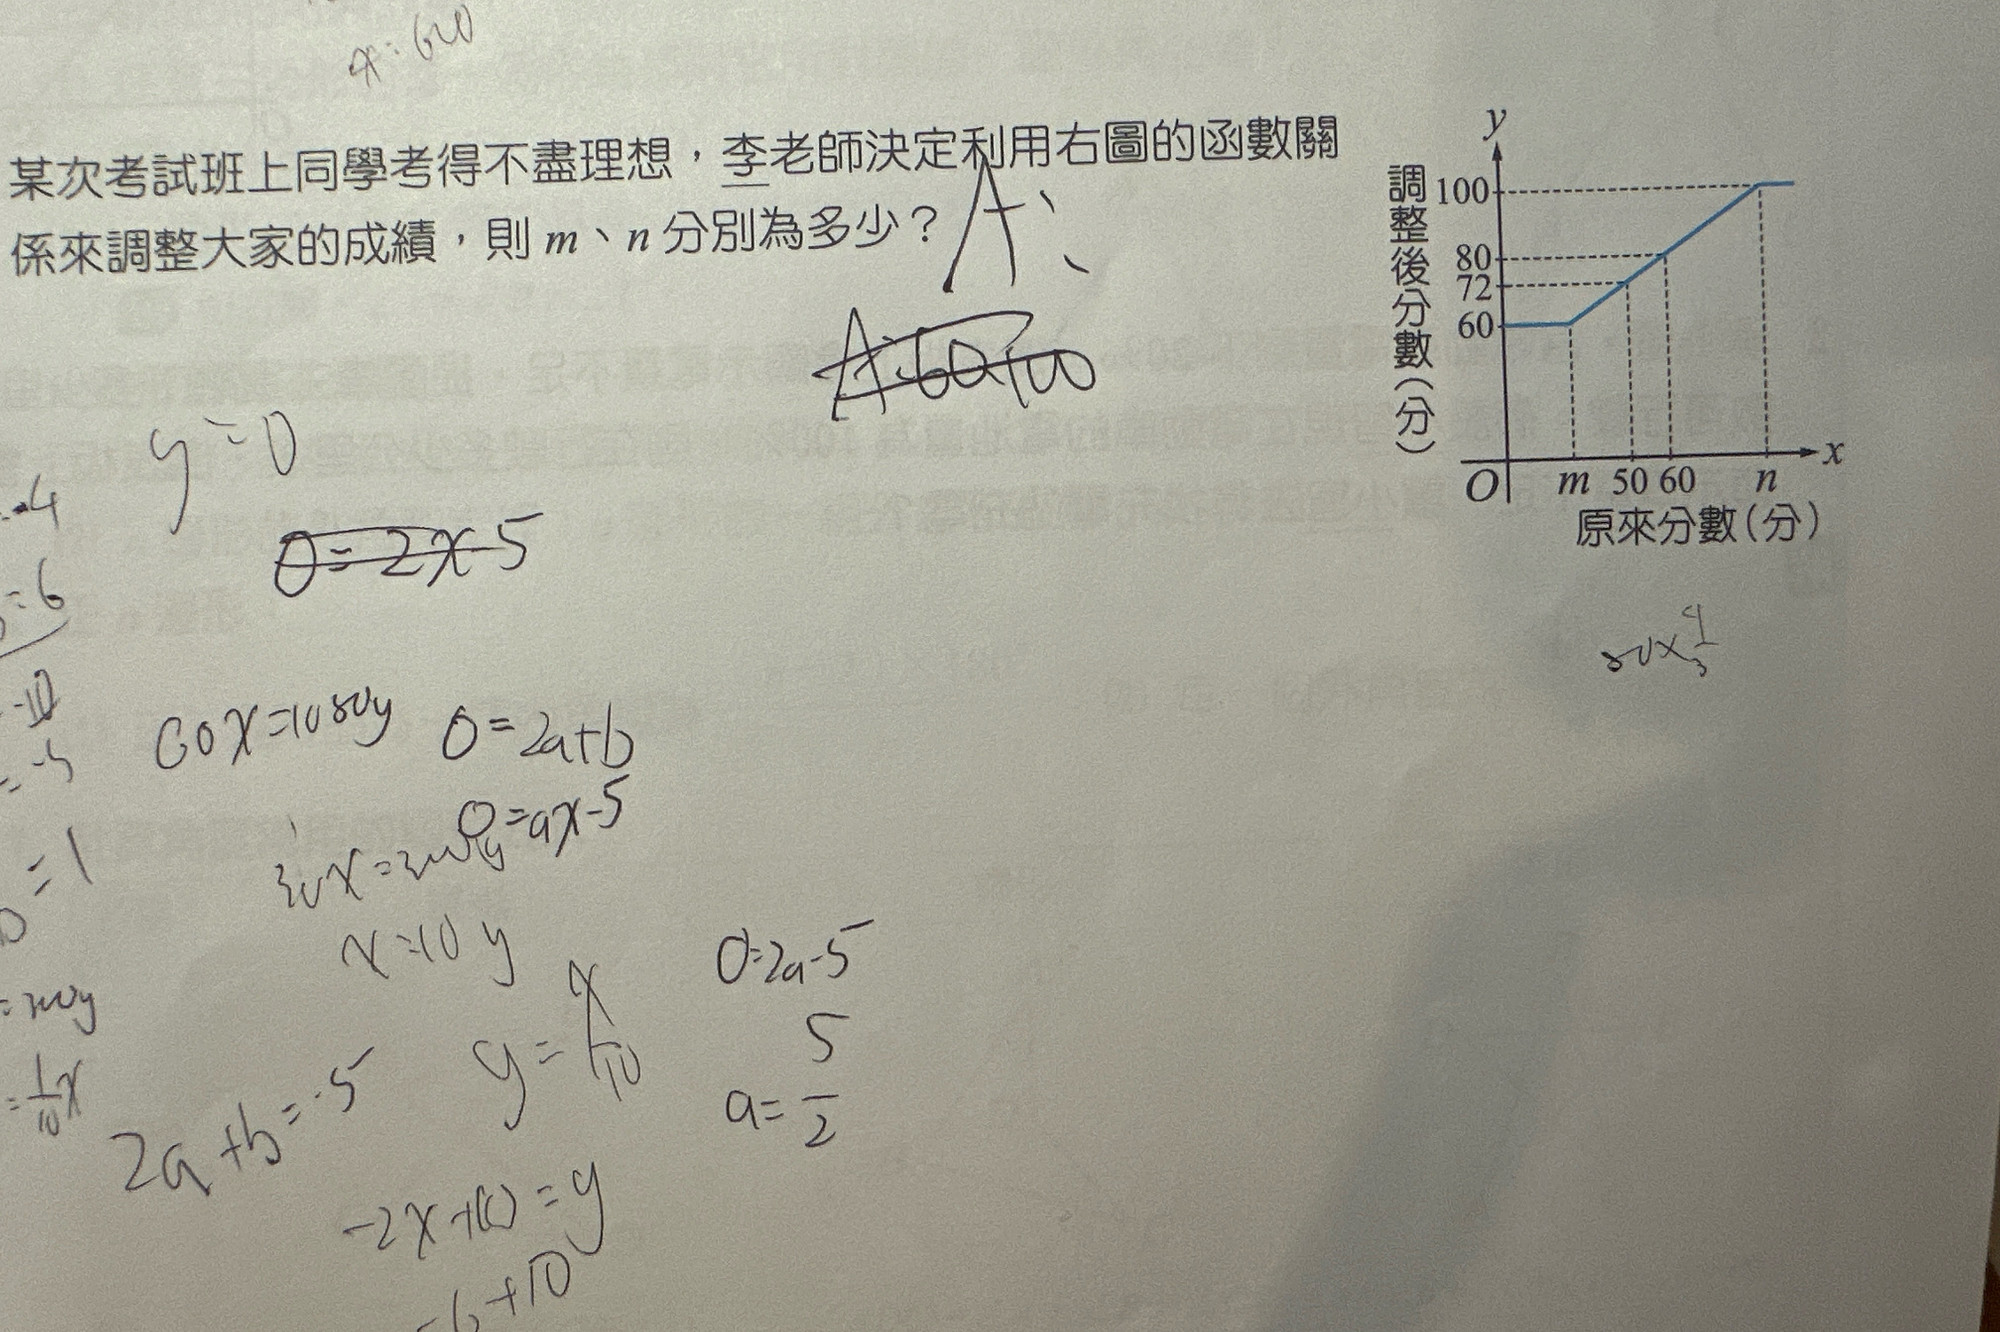 x=600
某次考試班上同學考得不盡理想，李老師決定利用右圖的函數關
係來調整大家的成績，則 m、n 分別為多少？
A:
A:60,100
y
調整後分數(分)
100
80
72
60
O m 50 60 n x
原來分數(分)
y=0
0=2x-5
-4
=6
60x=1080y
0=2a+b
0=ax-5
=1
30x=300y
x=10y
0=2a-5
5
y=x/10
a=5/2
=1/10x
2a+b=-5
-2x+10=y
-6+10